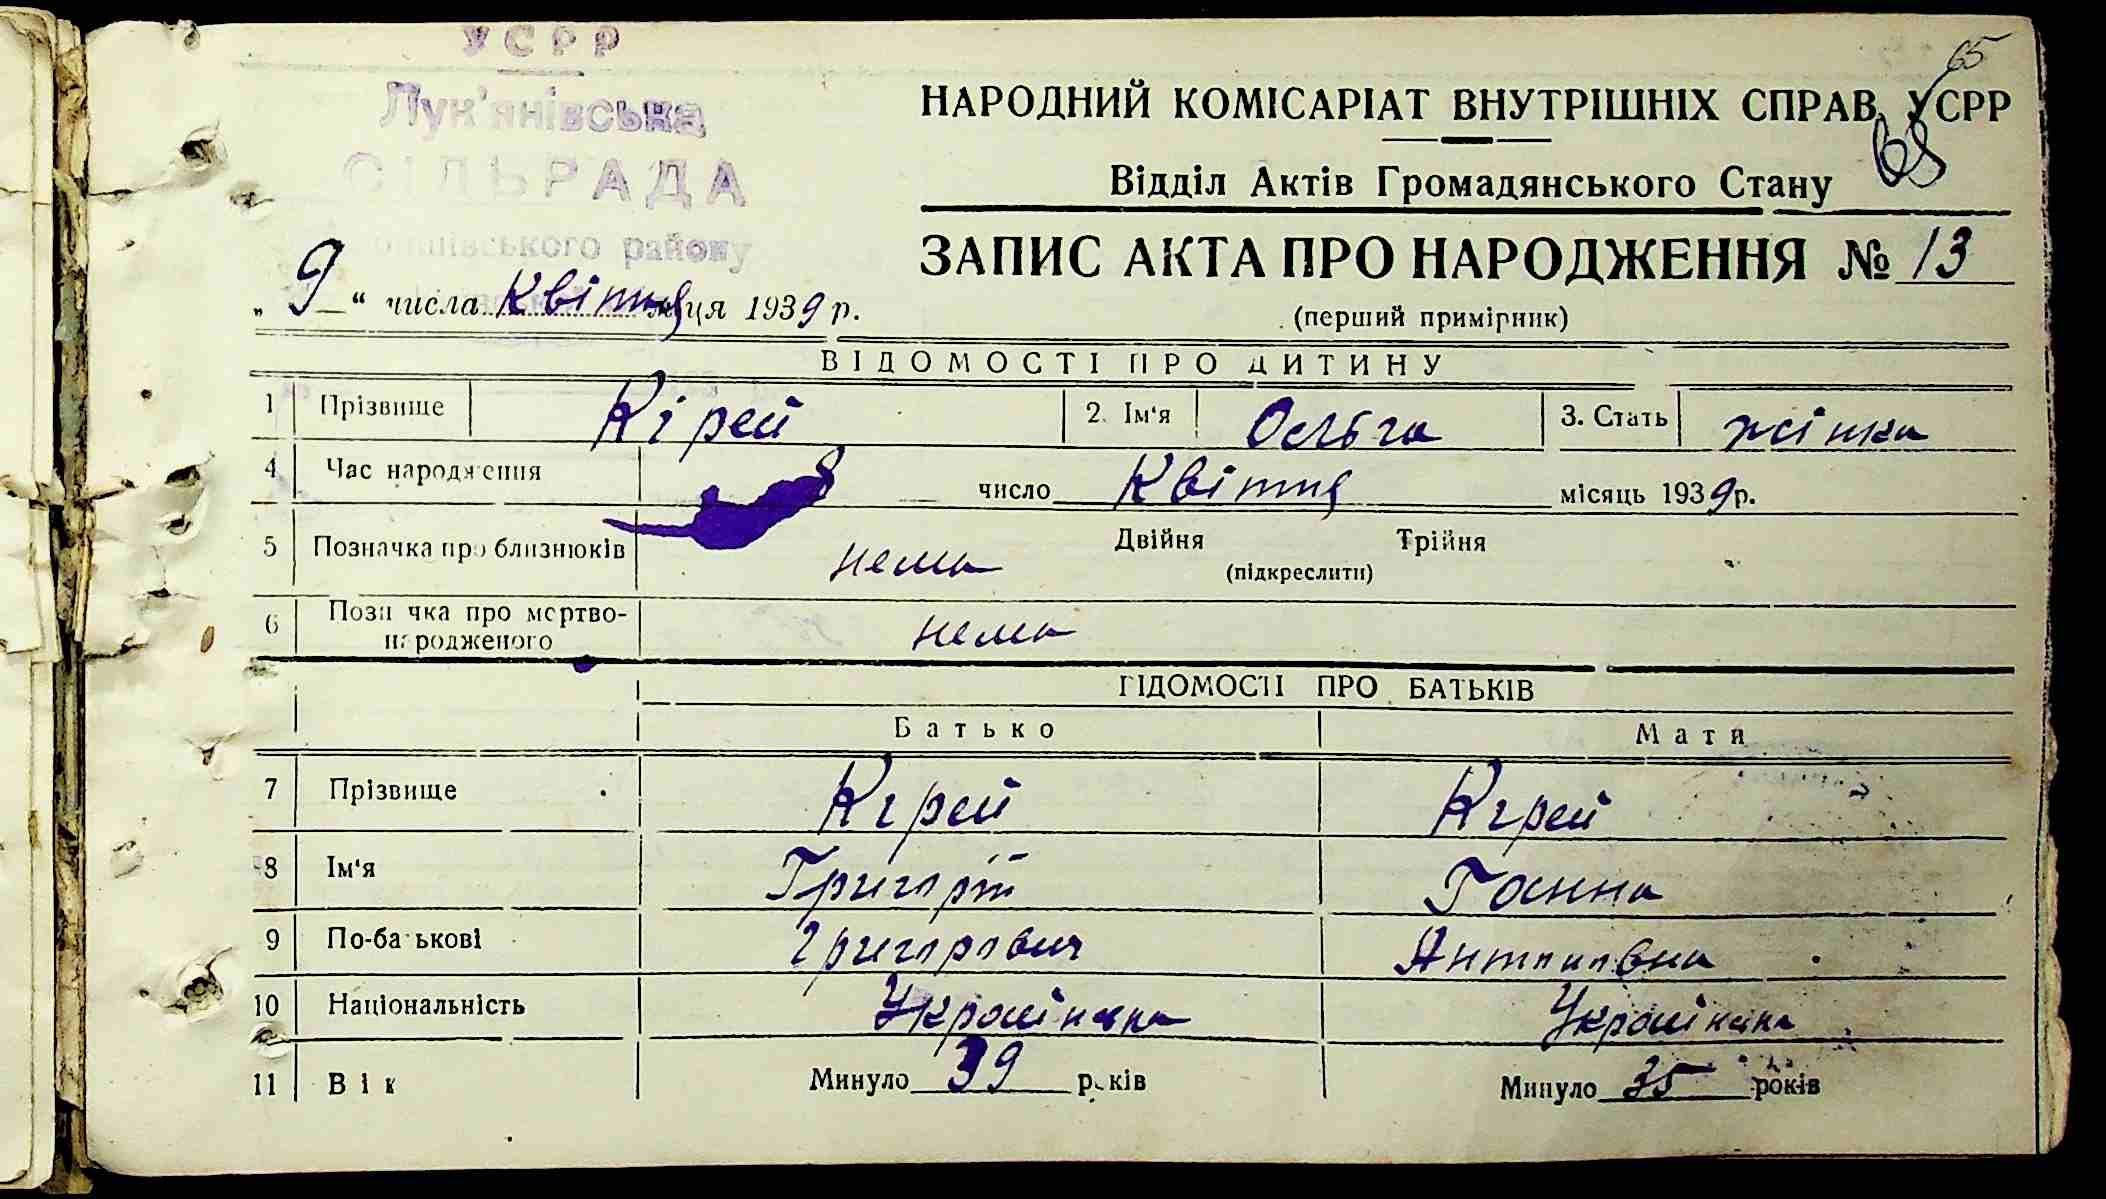 УСРР
Лук'янівська
СІЛЬРАДА
району
65
65
НАРОДНИЙ КОМІСАРІАТ ВНУТРІШНІХ СПРАВ УСРР
Відділ Актів Громадянського Стану
ЗАПИС АКТА ПРО НАРОДЖЕННЯ № 13
(перший примірник)
„ 9 “ числа Квітня м-ця 1939 р.
ВІДОМОСТІ ПРО ДИТИНУ
1 Прізвище Кірей 2. Ім'я Ольга 3. Стать жінка
4 Час народження 8 число Квітня місяць 1939 р.
5 Позначка про близнюків нема Двійня Трійня
(підкреслити)
6 Позначка про мертво-
народженого нема
ВІДОМОСТІ ПРО БАТЬКІВ
Батько Мати
7 Прізвище Кірей Кірей
8 Ім'я Григорій Ганна
9 По-батькові Григорович Антонівна
10 Національність Українка Українка
11 Вік Минуло 39 років Минуло 35 років